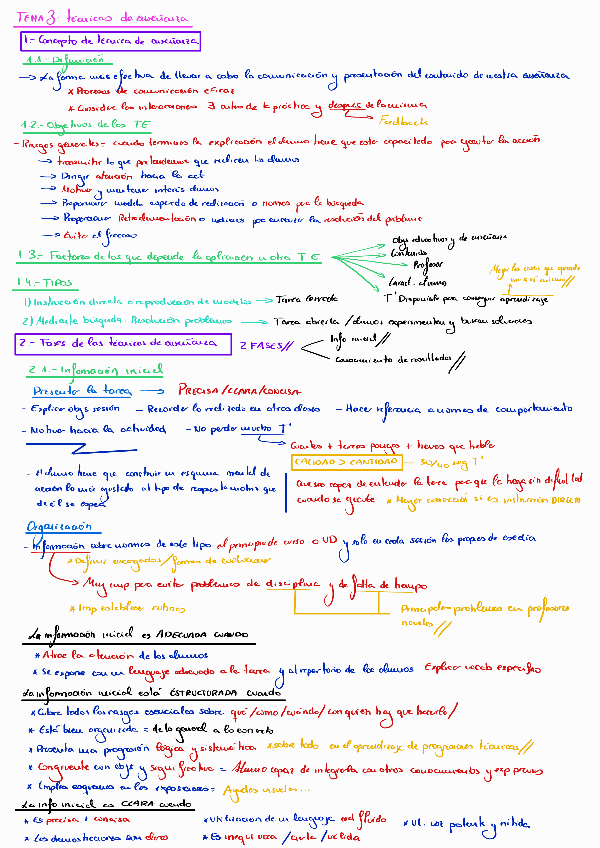 TEMA 3: técnicas de enseñanza
1.- Concepto de técnica de enseñanza
1.1.- Definición
→ La forma más efectiva de llevar a cabo la comunicación y presentación del contenido de nuestra enseñanza
* Procesos de comunicación eficaz
* Considera las interacciones antes de la práctica y después de la misma
Feedback
1.2.- Objetivos de las TE
- Rasgos generales = cuando termines la explicación el alumno tiene que estar capacitado para ejecutar la acción
→ Transmitir lo que pretendemos que realicen los alumnos
→ Dirigir atención hacia la act
→ Motivar y mantener interés alumnos
→ Proporcionar modelo esperado de realización o normas para la búsqueda
→ Proporcionar Retroalimentación o indicios para encontrar la resolución del problema
→ Evitar el fracaso
1.3.- Factores de los que depende la aplicación u otra TE
Objs educativos y de enseñanza
Contenidos
Profesor
Caract. alumno
T' Disponible para conseguir aprendizaje
1.4.- TIPOS
1) Instrucción directa o reproducción de modelos → Tarea cerrada
2) Mediante búsqueda. Resolución problemas → Tarea abierta / alumnos experimentan y buscan soluciones
2.- Fases de las técnicas de enseñanza
2 FASES //
Info inicial //
Conocimiento de resultados //
2.1.- Información inicial
Presentar la tarea → PRECISA/CLARA/CONCISA
- Explicar objs sesión - Recordar lo realizado en otras clases - Hacer referencia a normas de comportamiento
- Motivar hacia la actividad - No perder mucho T'
Cuantas + tareas pongas + tienes que hablar
CALIDAD > CANTIDAD
- El alumno tiene que construir un esquema mental de
acción lo más ajustado al tipo de respuesta motriz que
de él se espera
Que sea capaz de entender la tarea para que la haga sin dificultad
cuando se ejecute * Mayor concreción si es instrucción DIRECTA
Organización
- Información sobre normas de este tipo al principio de curso o UD y solo en cada sesión las propias de ese día
* Definir encargados/formas de evolucionar
→ Muy imp para evitar problemas de disciplina y de falta de tiempo
* Imp establecer rutinas
Principales problemas en profesores
noveles //
La información inicial es ADECUADA CUANDO
* Atrae la atención de los alumnos
* Se expone con un lenguaje adecuado a la tarea y al repertorio de los alumnos Explicar vocab específico
La información inicial está ESTRUCTURADA cuando
* Cubre todos los rasgos esenciales sobre qué/cómo/cuándo/con quién hay que hacerlo/
* Está bien organizada = de lo general a lo concreto
* Presenta una progresión lógica y sistemática * sobre todo en el aprendizaje de progresiones técnicas //
* Congruente con objs y significativa = Alumno capaz de integrarla con otros conocimientos y exp previos
* Emplea esquemas en las exposiciones = Ayudas visuales...
La info inicial es CLARA cuando
* Es precisa + concisa * Utilización de un lenguaje oral fluido * Ut. voz potente y nítida
* Las demostraciones son claras * Es inequívoca / exacta / válida